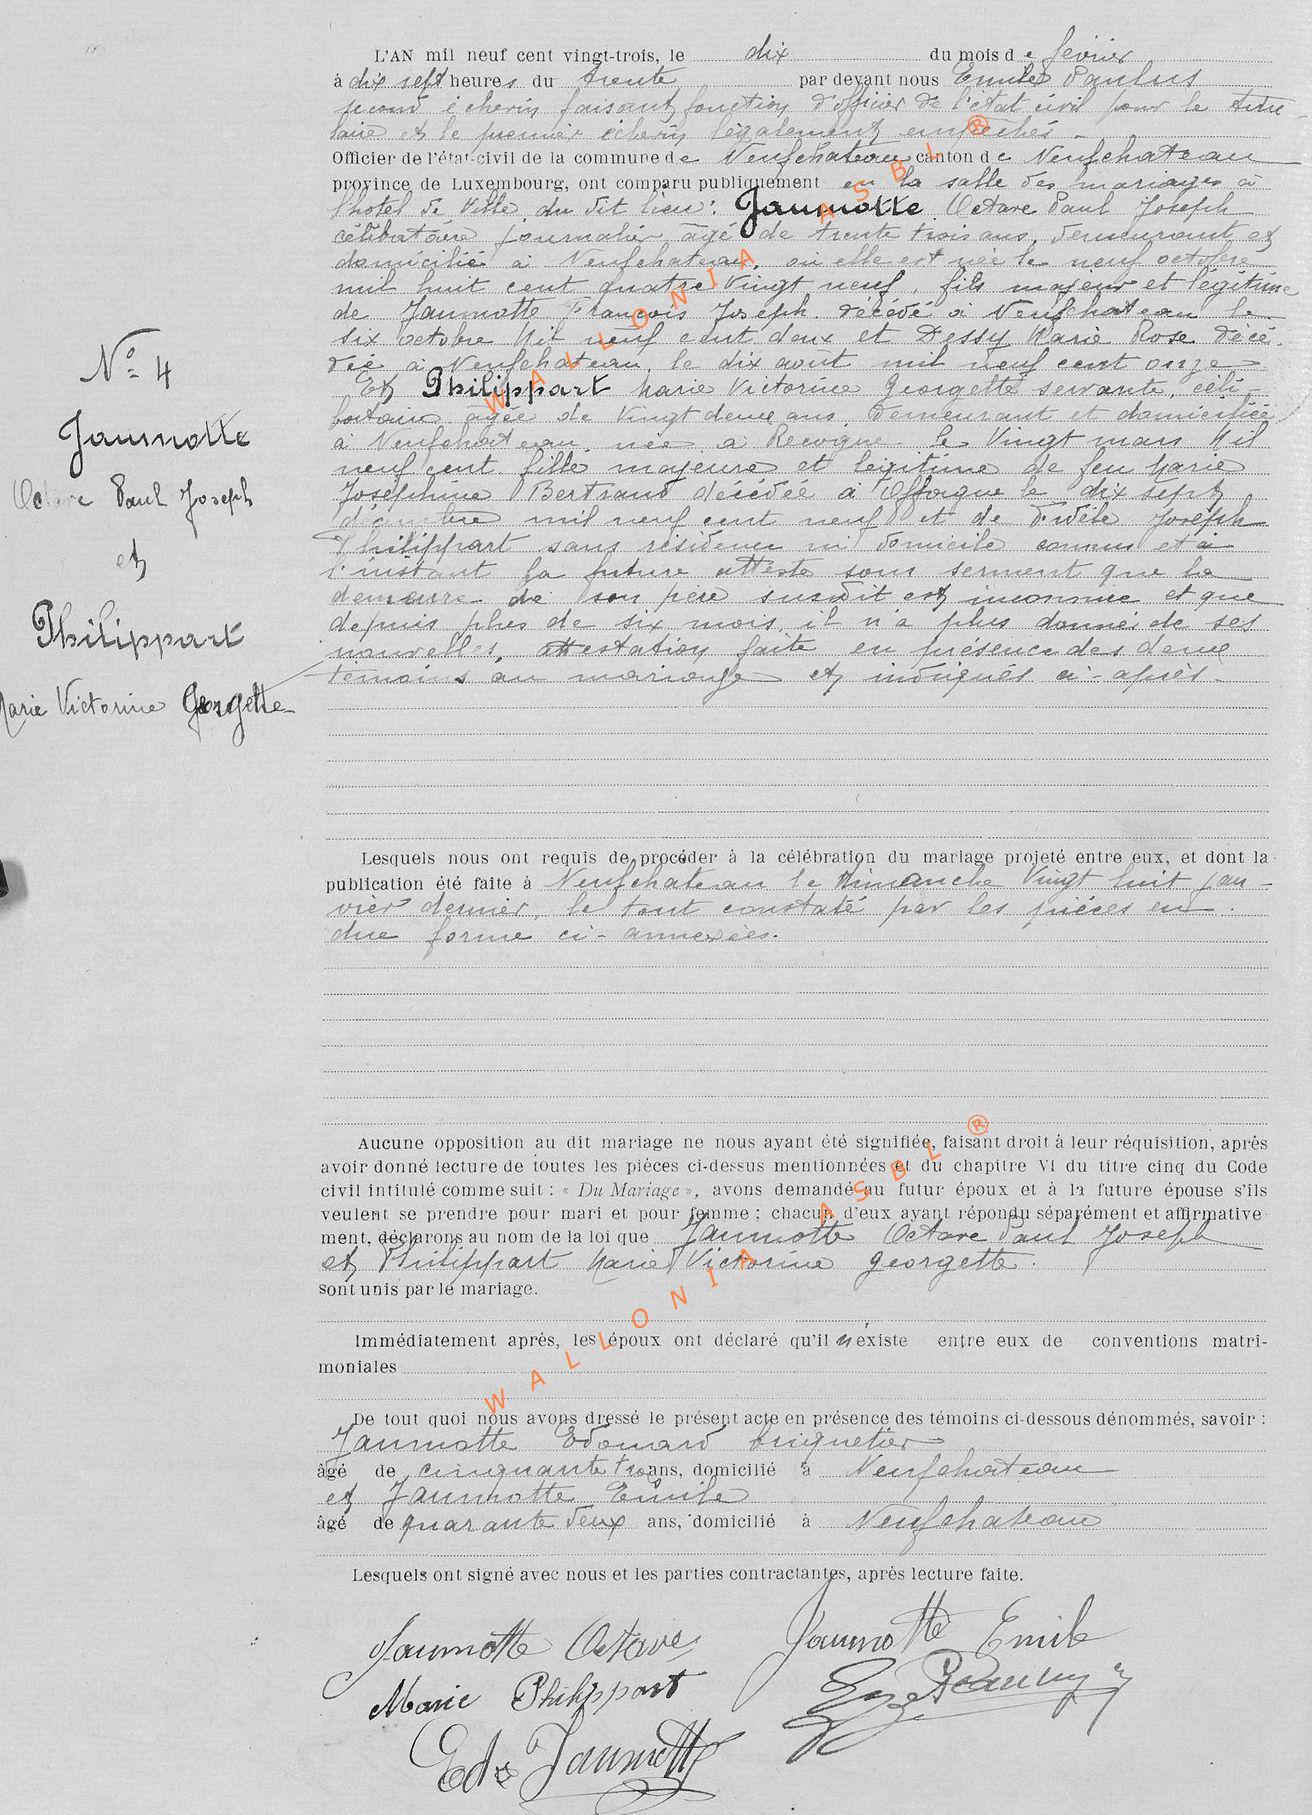 L'AN mil neuf cent vingt-trois, le dix du mois de février
à dix sept heures du trente par devant nous Emile Paulus
second échevin faisant fonction d'officier de l'état civil pour le titu-
laire et le premier échevin légalement empêchés -
Officier de l'état-civil de la commune de Neufchateau canton de Neufchateau
province de Luxembourg, ont comparu publiquement en la salle des mariages à
l'hotel de Ville du dit lieu: Jaumotte Octave Paul Joseph
célibataire journalier âgé de trente trois ans, demeurant et
domicilié à Neufchateau, où elle est née le neuf octobre
mil huit cent quatre vingt neuf, fils majeur et légitime
de Jaumotte François Joseph décédé à Neufchateau le
six octobre Mil neuf cent deux et Dessy Marie Rose décé-
dée à Neufchateau, le dix août mil neuf cent onze
Et Philippart Marie Victorine Georgette servante, céli-
bataire agée de Vingt deux ans, demeurant et domiciliée
à Neufchateau, née à Recogne le Vingt mars Mil
neuf cent fille majeure et légitime de feu Marie
Joséphine Bertrand décédée à Offagne le dix sept
décembre mil neuf cent neuf et de Fidèle Joseph
Philippart sans résidence ni domicile connus et à
l'instant la future atteste sous serment que la
demeure de son père susdit est inconnue et que
depuis plus de six mois, il n'a plus donné de ses
nouvelles, attestation faite en présence des deux
témoins au mariage et indiqués ci-après -
N° 4
Jaumotte
Octave Paul Joseph
et
Philippart
Marie Victorine Georgette
Lesquels nous ont requis de procéder à la célébration du mariage projeté entre eux, et dont la
publication été faite à Neufchateau le dimanche Vingt huit jan-
vier dernier, le tout constaté par les pièces en
due forme ci-annexées.
Aucune opposition au dit mariage ne nous ayant été signifiée, faisant droit à leur réquisition, après
avoir donné lecture de toutes les pièces ci-dessus mentionnées et du chapitre VI du titre cinq du Code
civil intitulé comme suit : « Du Mariage », avons demandé au futur époux et à la future épouse s'ils
veulent se prendre pour mari et pour femme ; chacun d'eux ayant répondu séparément et affirmative
ment, déclarons au nom de la loi que Jaumotte Octave Paul Joseph
et Philippart Marie Victorine Georgette.
sont unis par le mariage.
Immédiatement après, les époux ont déclaré qu'il n'existe entre eux de conventions matri-
moniales
De tout quoi nous avons dressé le présent acte en présence des témoins ci-dessous dénommés, savoir :
Jaumotte Edouard briquetier
âgé de cinquante trois ans, domicilié à Neufchateau
et Jaumotte Emile
âgé de quarante deux ans, domicilié à Neufchateau
Lesquels ont signé avec nous et les parties contractantes, après lecture faite.
Jaumotte Octave
Jaumotte Emile
Marie Philippart
Ed Jaumotte
WALLONIA ASBL ®
WALLONIA ASBL ®